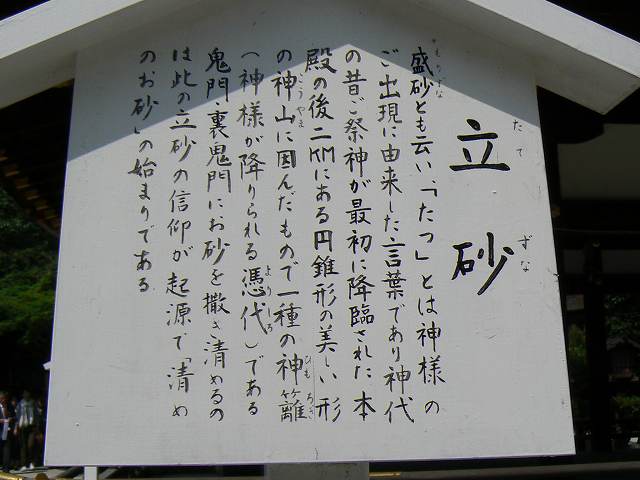 立砂
たてずな
盛砂とも云い「たつ」とは神様の
もりずな
ご出現に由来した言葉であり神代
の昔ご祭神が最初に降臨された本
殿の後二KMにある円錐形の美しい形
の神山に因んだもので一種の神籬
こうやま
ひもろぎ
(神様が降りられる憑代)である
よりしろ
鬼門・裏鬼門にお砂を撒き清めるの
は此の立砂の信仰が起源で「清め
のお砂」の始まりである